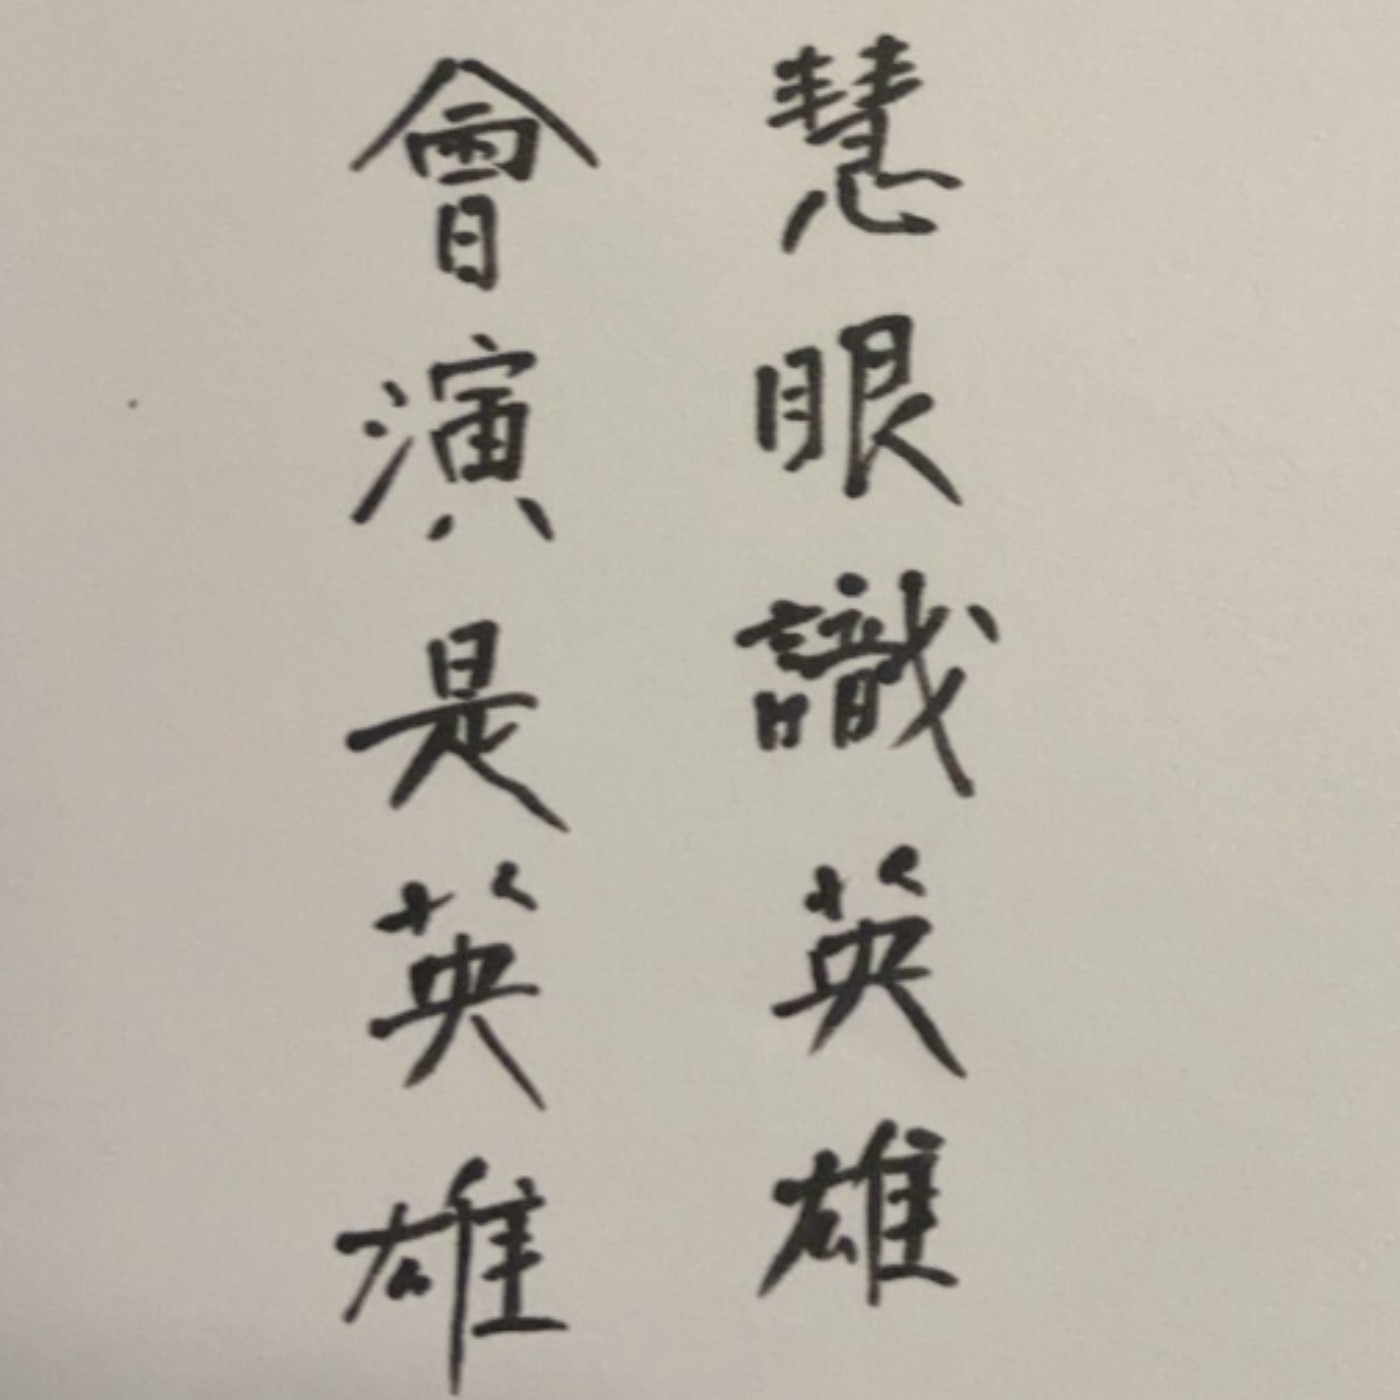 慧眼識英雄
會演是英雄